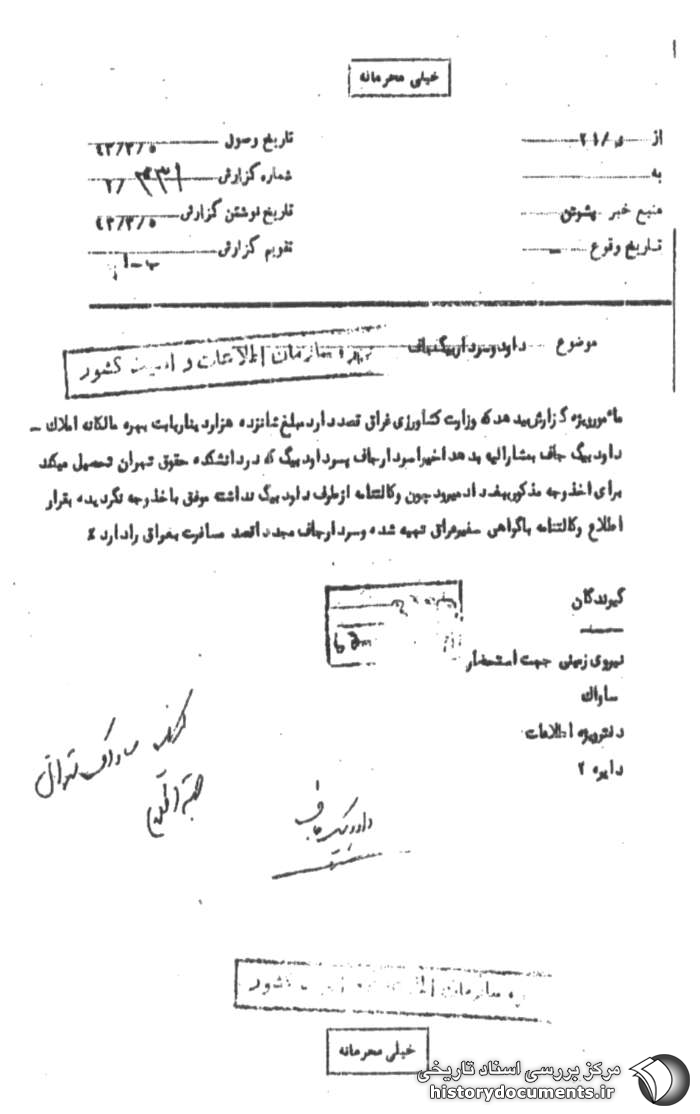 خیلی محرمانه
از
به
منبع خبر
تاریخ وقوع
تاریخ وصول ۴۳/۳/۵
شماره گزارش
تاریخ نوشتن گزارش ۴۳/۳/۵
تقویم گزارش ب-۱
موضوع داود و سردار بیگ جاف
سازمان اطلاعات و امنیت کشور
مأمور ویژه گزارش میدهد که وزارت کشاورزی عراق قصد دارد مبلغ شانزده هزار دینار بابت بهره مالکانه املاک -
داود بیگ جاف بمشارالیه بدهد اخیرا سردار جاف پسر داود بیگ که در دانشکده حقوق تهران تحصیل میکند
برای اخذ وجه مذکور ببغداد میرود چون وکالتنامه از طرف داود بیگ نداشته موفق باخذ وجه نگردیده بقرار
اطلاع وکالتنامه با گواهی سفیر عراق تهیه شده و سردار جاف مجددا قصد مسافرت بعراق را دارد
گیرندگان
نیروی زمینی جهت استحضار
ساواک
دفتر ویژه اطلاعات
دایره ۲
ساواک تهران
داود بیگ جاف
سازمان کشور
خیلی محرمانه
مرکز بررسی اسناد تاریخی
historydocuments.ir